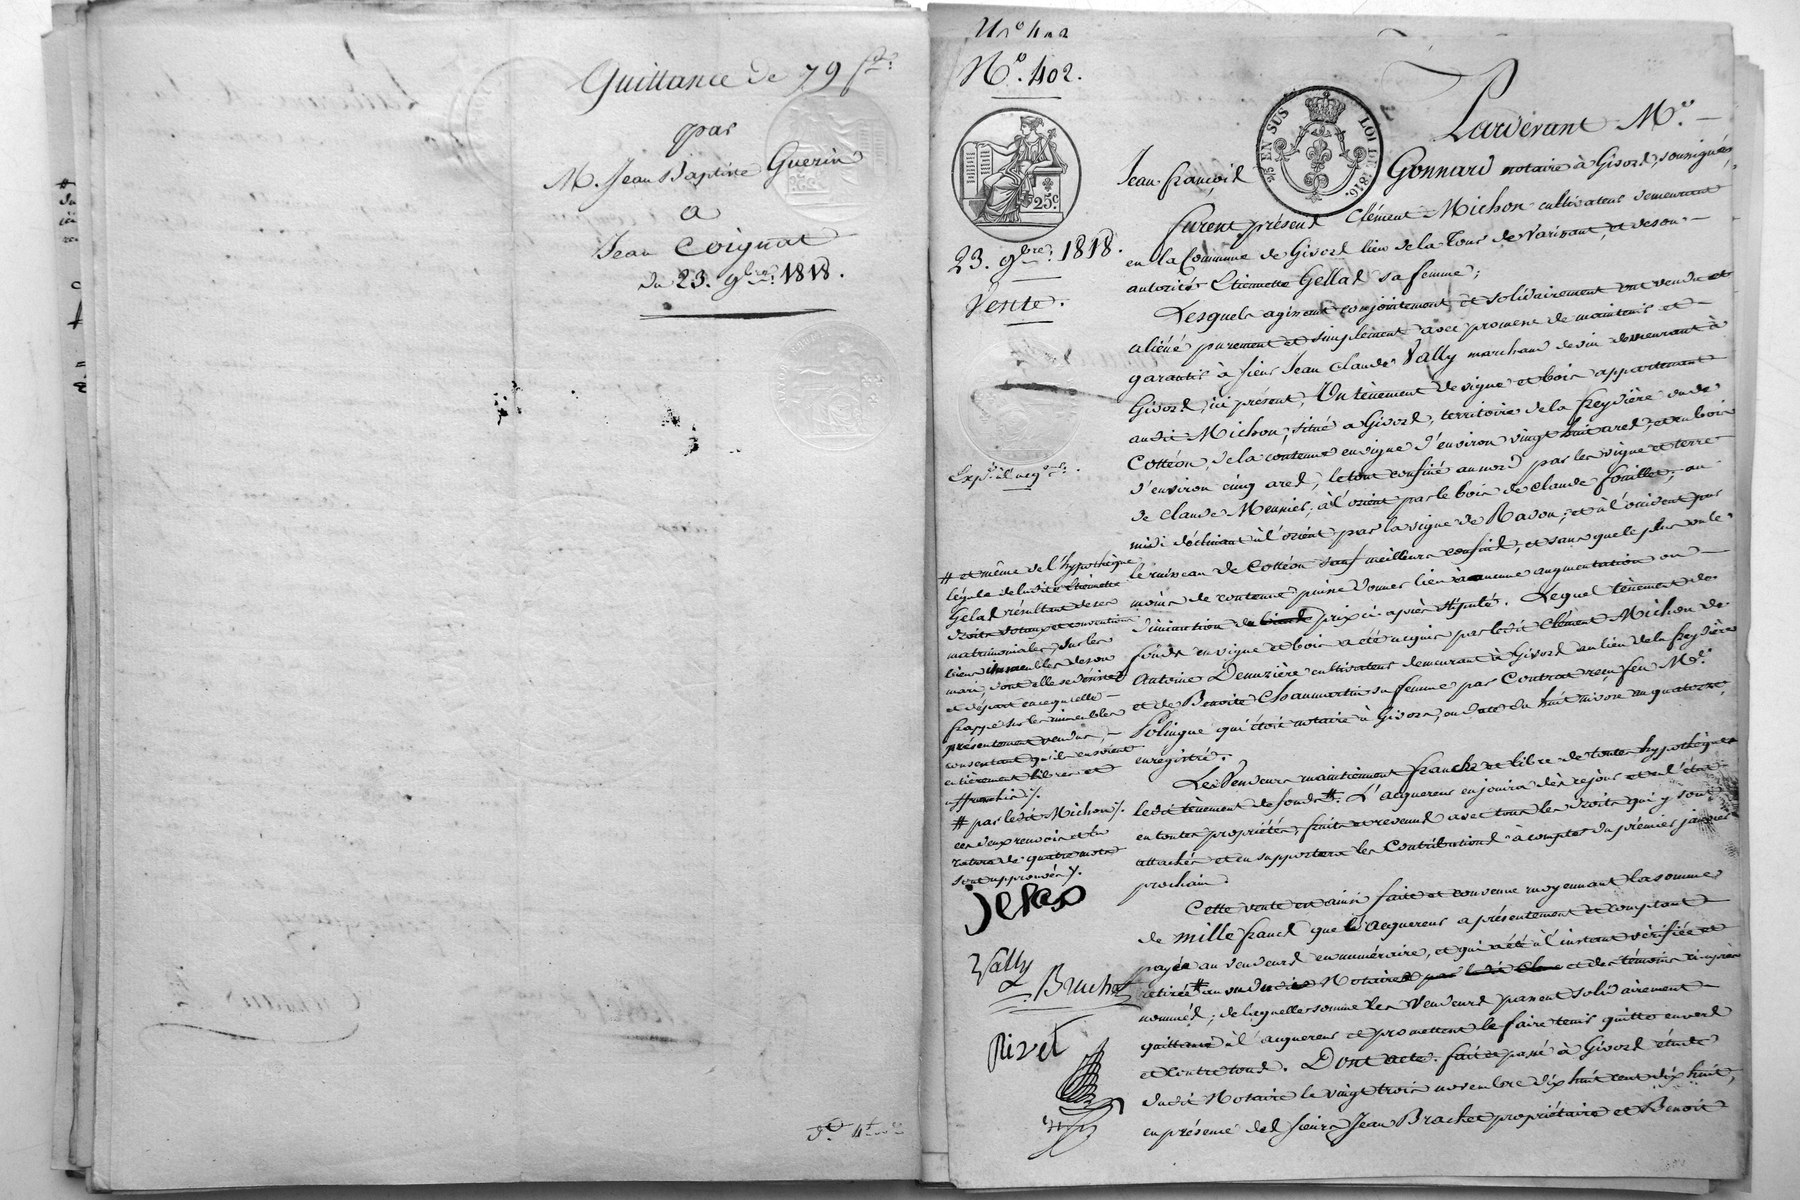 Quittance de 79 f.
par
M. Jean Baptiste Guerin
a
Jean Coignat
du 23. 9bre 1818.
N° 402
N°. 402.
25c
25 EN SUS LOI DE 1816.
23. 9bre 1818.
Vente.
Pardevant Me.
Jean françois Gonnard notaire à Givors, soussigné,
furent présens Clément Michon cultivateur demeurant
en la Commune de Givors lieu de la Tour de Varissant, et de son
autorité Etiennette Gellas sa femme;
Lesquels agissant conjointement et solidairement ont vendu et
aliéné purement et simplement avec promesse de maintenir et
garantir à sieur Jean Claude Vally marchand de vin demeurant à
Givors, ici présent, Un tènement de vigne et bois appartenant
audit Michon, situé à Givors, territoire de la freydière ou de
Cotéon, de la contenue en vigne d'environ vingt huit ares, et en bois
d'environ cinq ares, le tout confiné au nord par les vigne et terre
de Claude Meunier; à l'orient par le bois de Claude fouillet; au
midi déclinant à l'orient par la vigne de Radon; et à l'occident par
le ruisseau de Cotéon sauf meilleurs confins, et sans que le plus ou le
moins de contenue puisse donner lieu à aucune augmentation ou
diminution du prix ci après stipulé. Lequel tènement de
fonds en vigne et bois a été acquis par ledit Clément Michon de
Antoine Denuzière cultivateur demeurant à Givors au lieu de la freydière
et de Benoite Chaumartin sa femme par Contrat reçu feu Me.
Polingue qui étoit notaire à Givors, en date du huit nivôse an quatorze,
enregistré.
Les Vendeurs maintiennent franche et libre de toutes hypothèques
ledit tènement de fonds #. L'acquereur en jouira dès ce jour et à l'état
en toutes propriétés, fruits et revenus avec tous les droits qui y sont
attachés et en supportera les Contributions à compter du premier janvier
prochain.
Cette vente est ainsi faite et convenue moyennant la somme
de mille francs que l'acquereur a présentement et comptant
payée au vendeurs en numéraire, et qui a été à l'instant vérifiée et
retirée # au vu dudit Notaire et des témoins ci après
nommés; de laquelle somme les Vendeurs passent solidairement
quittance à l'acquereur et promettent le faire tenir quitte envers
et contre tous. Dont acte. fait et passé à Givors étude
dudit Notaire le vingt trois novembre dix huit cent dix huit,
en présence des sieurs Jean Brachet propriétaire et Benoit
# et même de l'hypothèque
légale de ladite Etiennette
Gelas résultant de ses
droits dotaux et convention
matrimoniales, sur les
biens immeubles de son
mari, dont elle se désiste
et départ en ce qu'elle
frappe sur les immeubles
présentement vendus,
consentant qu'ils en soient
entièrement libres et
affranchis ./.
# par ledit Michon ./.
ces deux renvois et la
rature de quatre mots
sont approuvés ./.
Vally
Brachet
Rivet